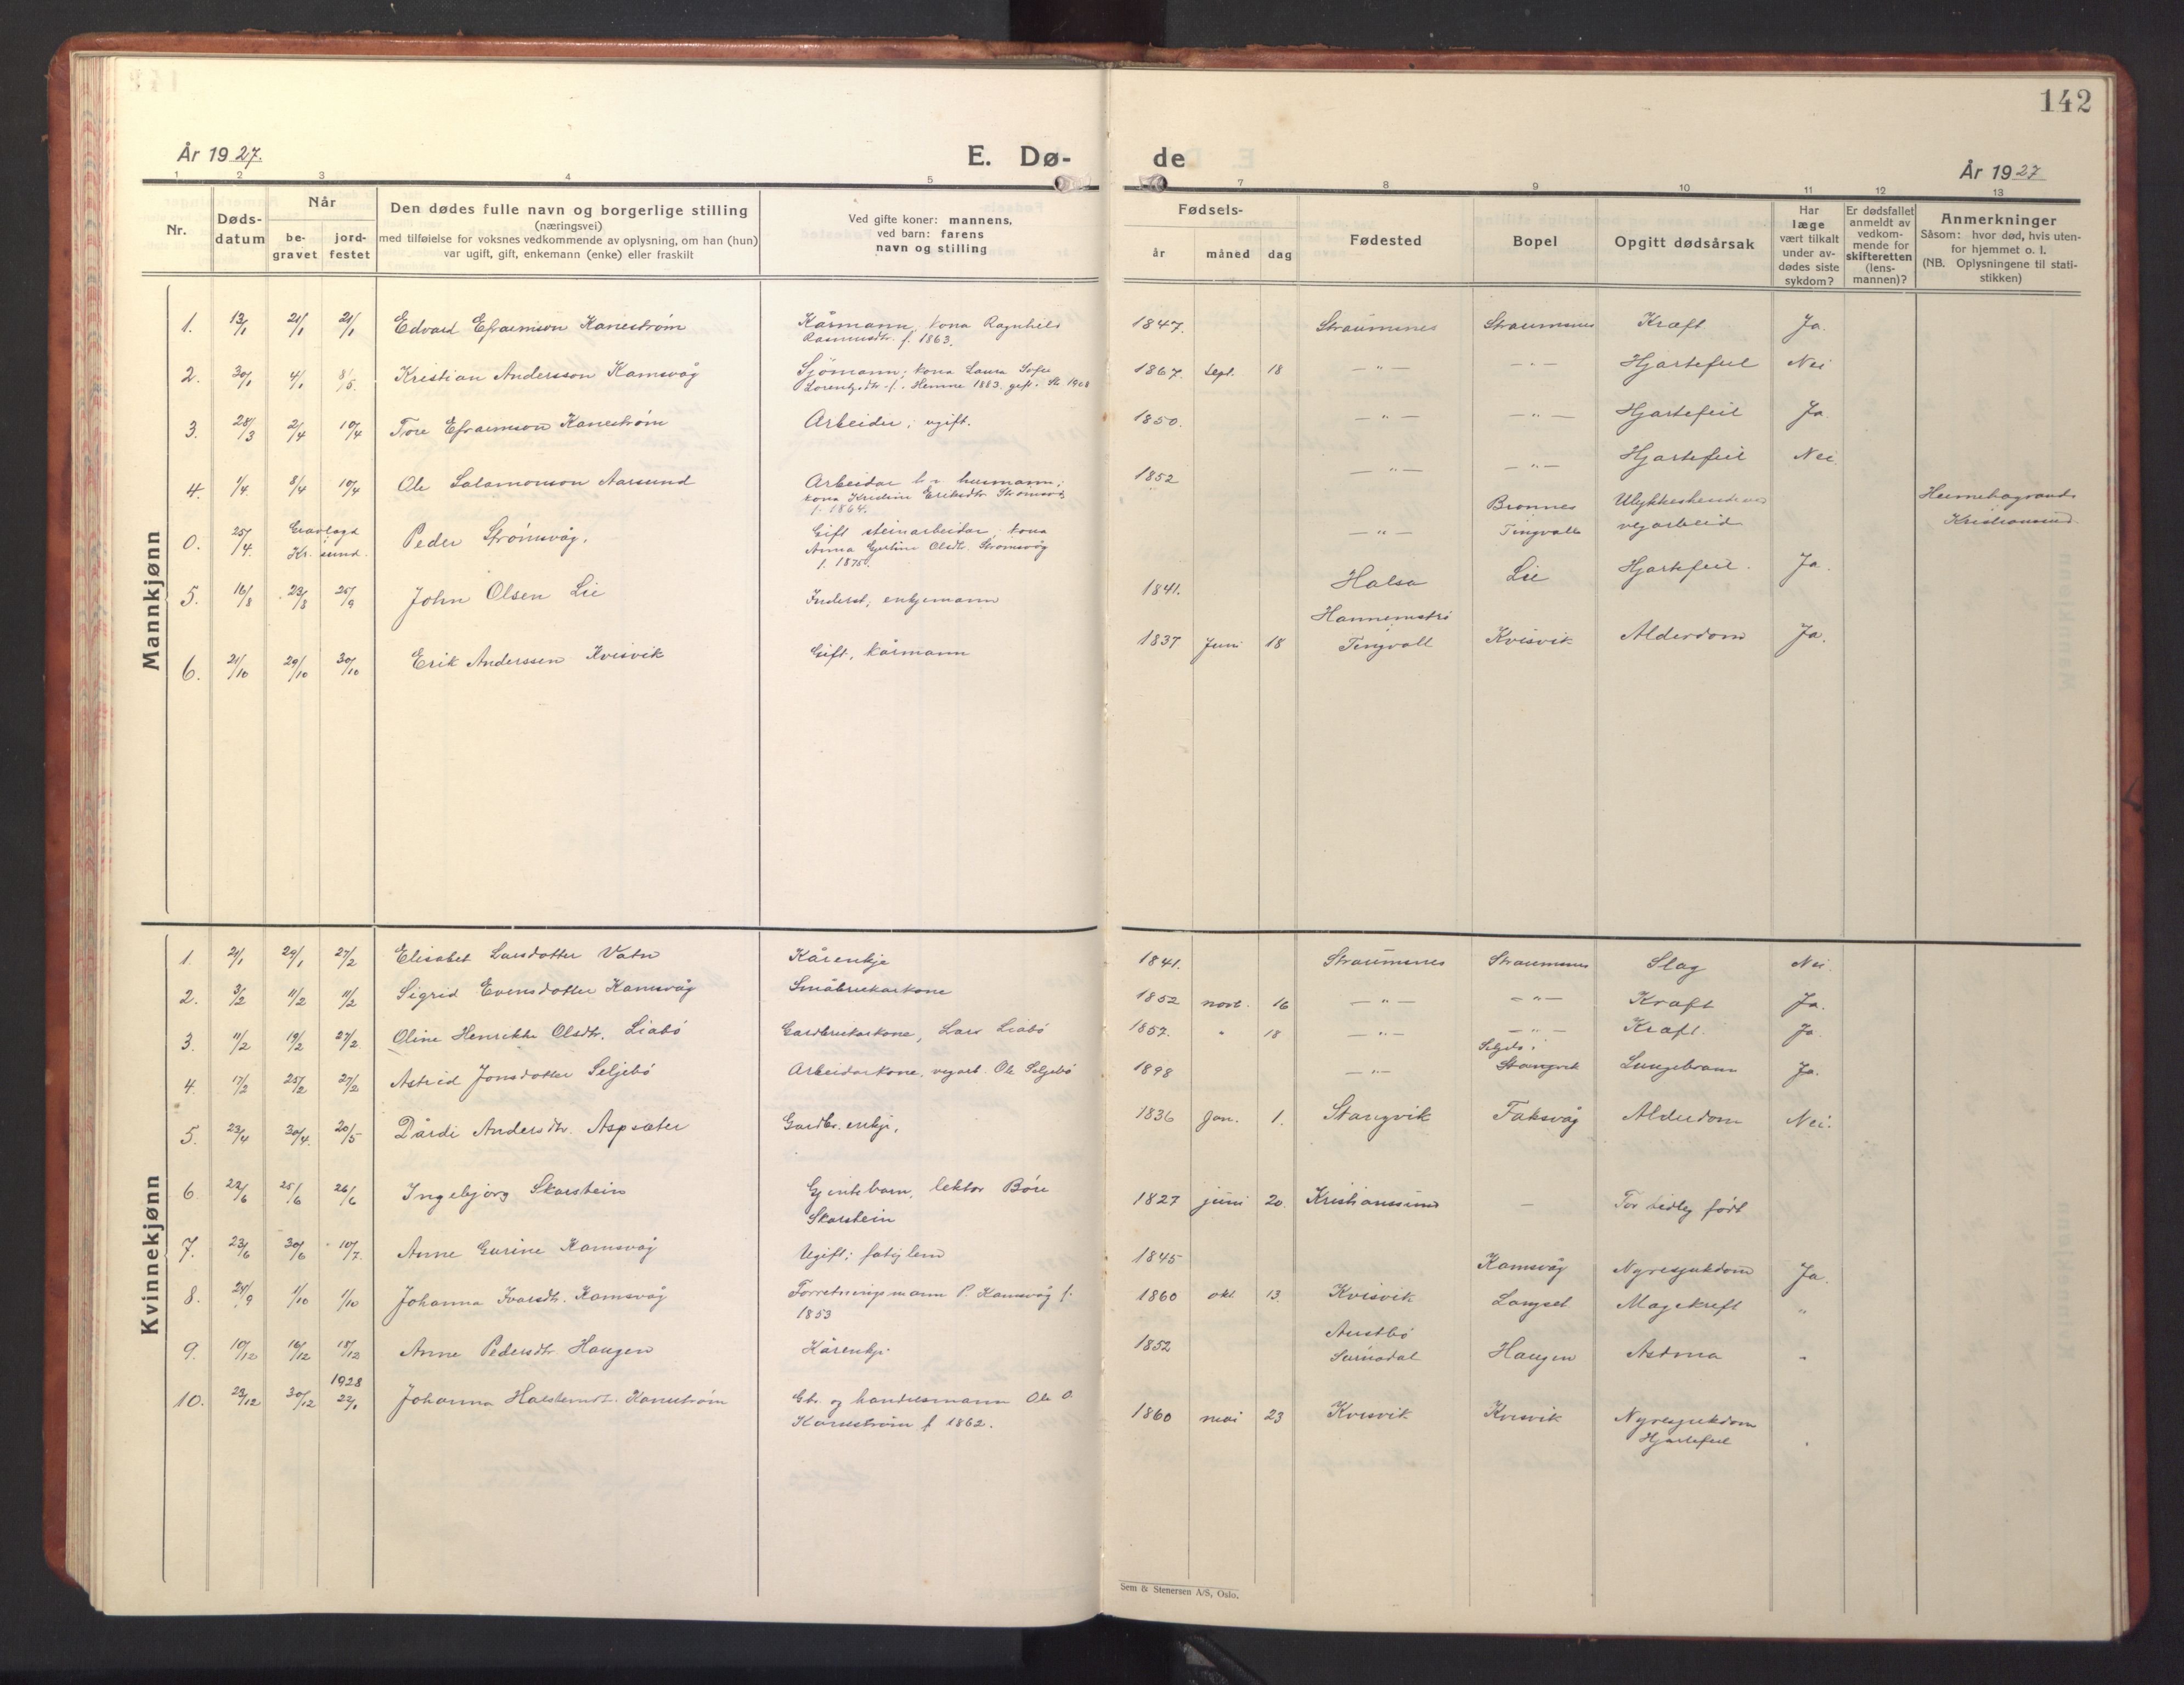 142
År 1927.
E. Dø-
de
År 1927
1 2 3 4 5 7 8 9 10 11 12 13
Nr.
Døds-
datum
Når
be-
gravet
jord-
festet
Den dødes fulle navn og borgerlige stilling
(næringsvei)
med tilføielse for voksnes vedkommende av oplysning, om han (hun)
var ugift, gift, enkemann (enke) eller fraskilt
Ved gifte koner: mannens,
ved barn: farens
navn og stilling
Fødsels-
år måned dag
Fødested
Bopel
Opgitt dødsårsak
Har
læge
vært tilkalt
under av-
dødes siste
sykdom?
Er dødsfallet
anmeldt av
vedkom-
mende for
skifteretten
(lens-
mannen)?
Anmerkninger
Såsom: hvor død, hvis uten-
for hjemmet o. l.
(NB. Oplysningene til stati-
stikken)
Mannkjønn
1. 13/1 21/1 21/1 Edvard Efraimson Kanestrøm Kårmann, kona Ragnhild 1847. Straumsnes Straumsnes Kræft Ja.
Rasmusdtr. f. 1863.
2. 30/1 4/1 8/5. Kristian Andersson Kamsvåg Sjömann; kona Laura Sofie 1867. Sept. 18 — " — - " - Hjartefeil Nei
Lorentzdtr. f. Hemne 1883. gift. 1908
3. 28/3 2/4 10/4 Tore Efraimson Kanestrøm Arbeider; ugift. 1850. — " — — " — Hjartefeil Ja.
4. 1/4. 8/4 10/4 Ole Salamonson Aarsund Arbeidar husmann; 1852 — " — — " — Hjartefeil Nei.
kona Kristine Eriksdtr. Strømsvåg
f. 1864.
0. 25/4. Gravlagd Peder Strømsvåg, Gift steinarbeidar, kona — " — Bronnes
Kr.sund. Anna Gurine Olsdtr. Strømsvåg Tingvoll vegarbeid Kristiansund
f. 1875.
5. 16/8 23/8 25/9 John Olsen Lie Inderst, enkjemann 1841. Halsa Lie Hjartefeil. Ja.
6. 21/10 29/10 30/10 Erik Anderssen Kvisvik Gift, kårmann 1837 Juni 18 Tingvoll Kvisvik Alderdom Ja.
Kvinnekjønn
1. 21/1 29/1 27/2 Elisabet Larsdotter Vatn Kårenkje 1841. Straumsnes Straumsnes Slag Nei.
2. 3/2 11/2 11/2 Sigrid Evensdotter Kamsvåg Småbrukarkone 1852 novb. 16 — " — — " — Kræft Ja.
3. 11/2 19/2 27/2. Oline Henrikke Olsdtr. Liabö Gardbrukarkone, Lars Liabö 1857. " 18 — " — — " — Kræft. Ja.
4. 17/2 25/2 27/2 Astrid Jonsdotter Seljebö Arbeidarkone, vegarb. Ole Seljebö 1898 — " — Stangvik Lungebrann Ja.
5. 23/4 30/4. 20/5 Dårdi Andersdtr. Aspsæter Gardbr. enkje. 1836 Jan. 1. Stangvik Taksvåg Alderdom Nei.
6. 22/6 25/6 26/6 Ingebjørg Skarstein Gjentebarn, lektor Bóre 1827 juni 20. Kristianssund — For tidleg født
Skarstein
7. 23/6 30/6 10/7. Anne Gurine Kamsvåg Ugift; fatiglem 1845 Kamsvåg Nyresjukdom Ja.
8. 24/9 1/10 1/10 Johanna Ivarsdtr. Kamsvåg Forretningsmann P. Kamsvåg f. 1860 okt. 13. Kvisvik Langset Magekreft "
1853
9. 10/12 16/12 18/12 Anne Pedersdtr Haugen Kårenkje. 1852 Austbö Haugen Astma "
Surnadal
1928
10. 23/12 30/12 22/1 Johanna Halstensdtr. Kanestrøm Gbr. og handelsmann Ole O. 1860 mai 23 Kvisvik Kvisvik Nyresjukdom
Kanestrøm f. 1862. Hjartefeil "
Sem & Stenersen A/S, Oslo.